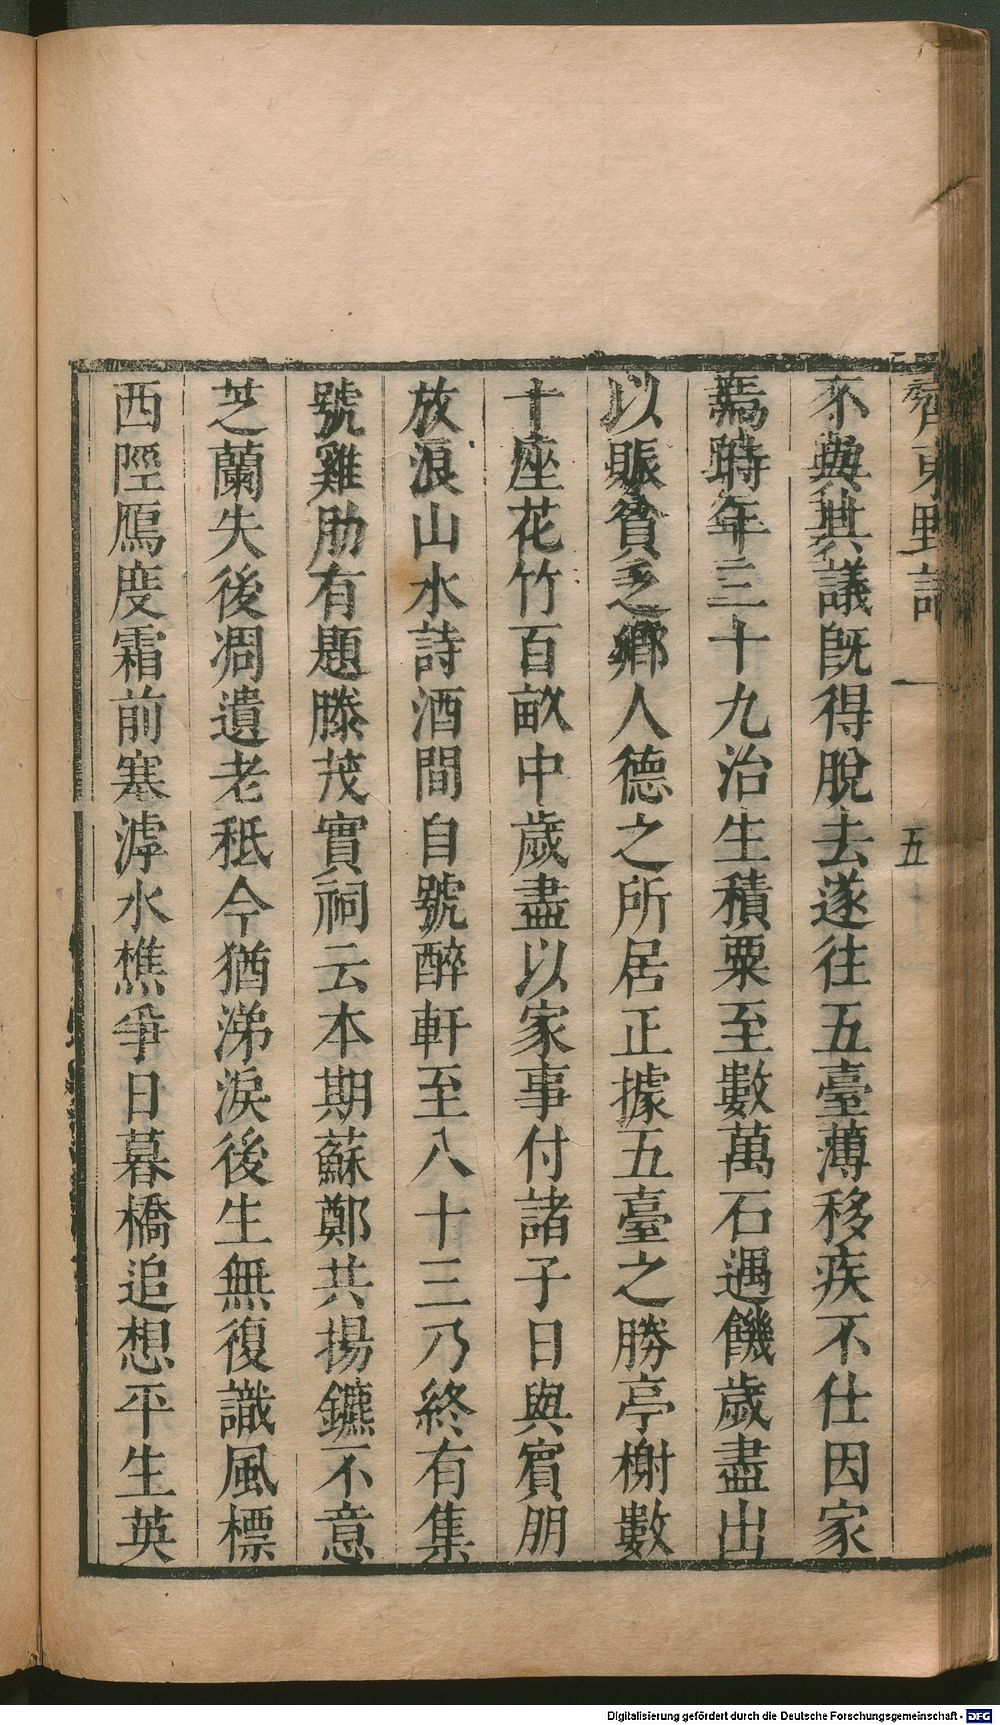 齊東野語 一 五
不與其議旣得脫去遂往五臺薄移疾不仕因家
焉時年三十九治生積粟至數萬石遇饑歲盡出
以賑貧乏鄉人德之所居正據五臺之勝亭榭數
十座花竹百畝中歲盡以家事付諸子日與賓朋
放浪山水詩酒間自號醉軒至八十三乃終有集
號雞肋有題滕茂實祠云本期蘇鄭共揚鑣不意
芝蘭失後凋遺老秪今猶涕淚後生無復識風標
西陘鴈度霜前塞滹水樵爭日暮橋追想平生英
Digitalisierung gefördert durch die Deutsche Forschungsgemeinschaft - DFG